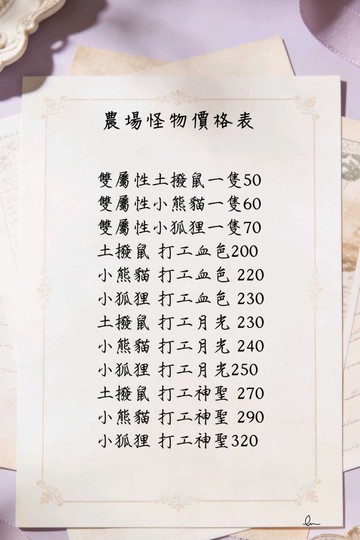 農場怪物價格表
雙屬性土撥鼠一隻50
雙屬性小熊貓一隻60
雙屬性小狐狸一隻70
土撥鼠 打工血色200
小熊貓 打工血色 220
小狐狸 打工血色 230
土撥鼠 打工月光 230
小熊貓 打工月光 240
小狐狸 打工月光250
土撥鼠 打工神聖 270
小熊貓 打工神聖 290
小狐狸 打工神聖320